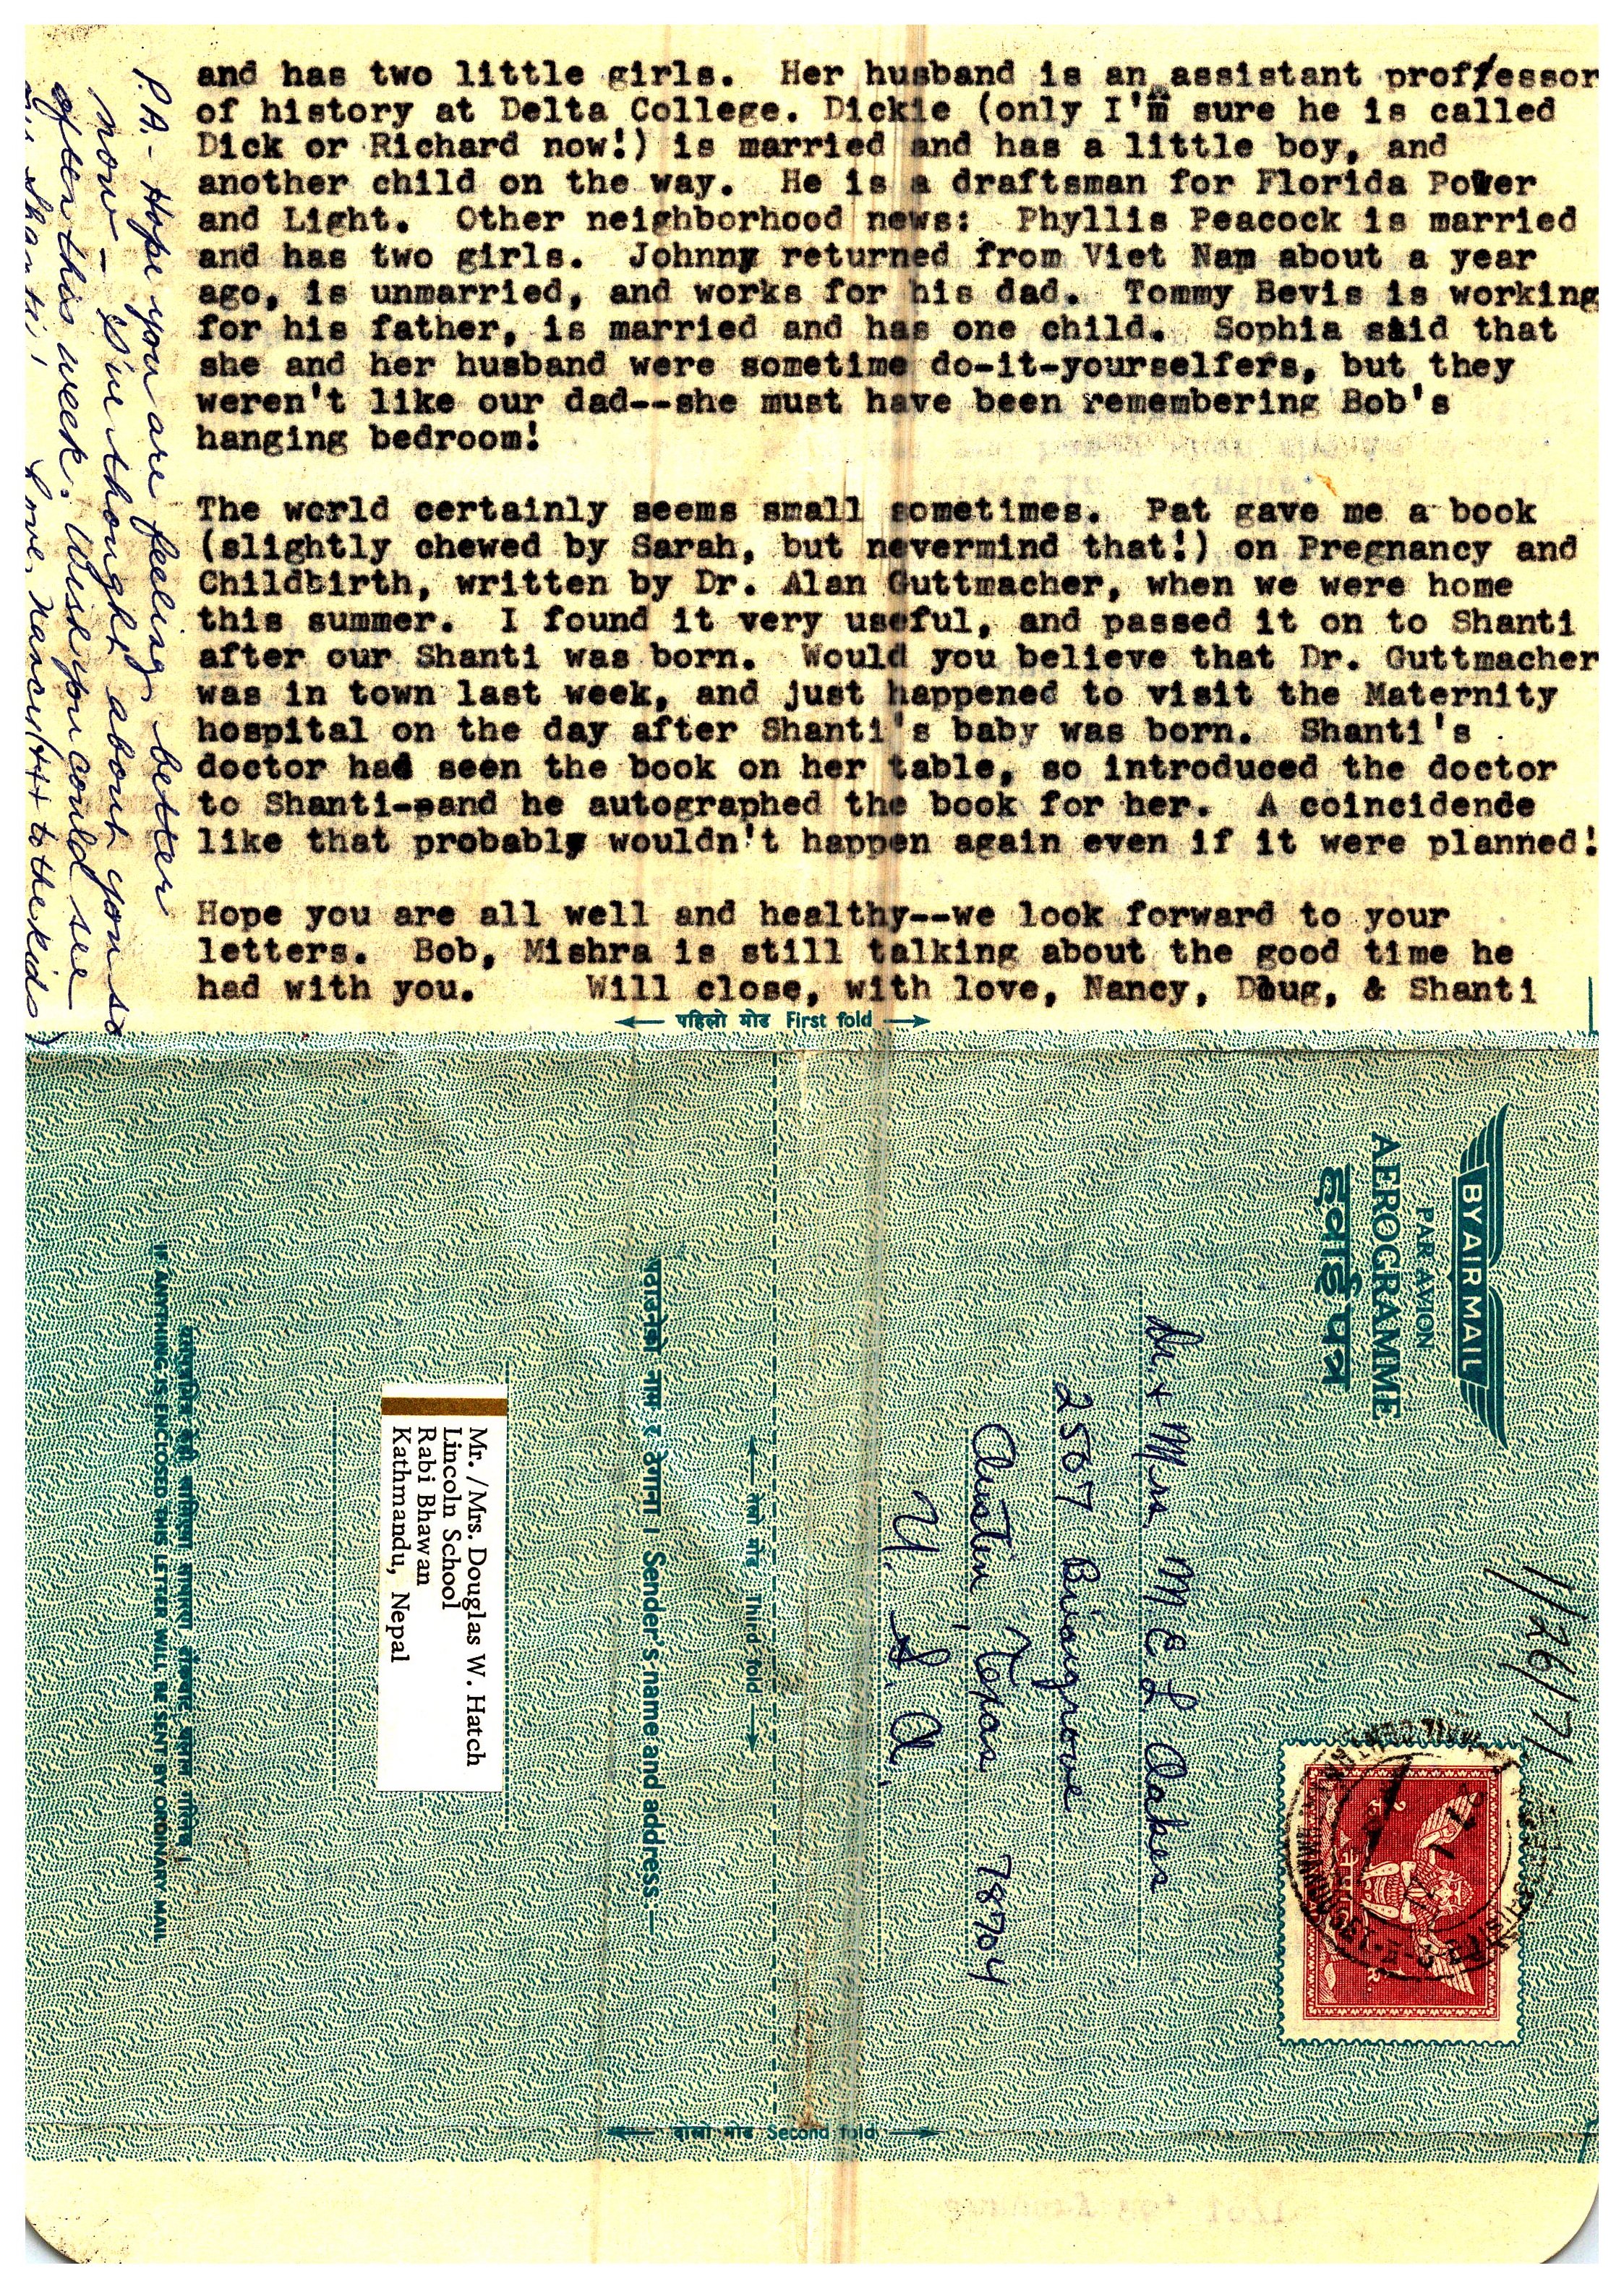 and has two little girls.  Her husband is an assistant prof/essor
of history at Delta College. Dickie (only I'm sure he is called
Dick or Richard now!) is married and has a little boy, and
another child on the way.  He is a draftsman for Florida Power
and Light.  Other neighborhood news:  Phyllis Peacock is married
and has two girls.  Johnny returned from Viet Nam about a year
ago, is unmarried, and works for his dad.  Tommy Bevis is working
for his father, is married and has one child.  Sophia said that
she and her husband were sometime do-it-yourselfers, but they
weren't like our dad--she must have been remembering Bob's
hanging bedroom!
The world certainly seems small sometimes.  Pat gave me a book
(slightly chewed by Sarah, but nevermind that!) on Pregnancy and
Childbirth, written by Dr. Alan Guttmacher, when we were home
this summer.  I found it very useful, and passed it on to Shanti
after our Shanti was born.  Would you believe that Dr. Guttmacher
was in town last week, and just happened to visit the Maternity
hospital on the day after Shanti's baby was born.  Shanti's
doctor had seen the book on her table, so introduced the doctor
to Shanti--and he autographed the book for her.  A coincidence
like that probably wouldn't happen again even if it were planned!
Hope you are all well and healthy--we look forward to your
letters.  Bob, Mishra is still talking about the good time he
had with you.     Will close, with love, Nancy, Doug, & Shanti
P.A. - Hope you are feeling better
now - I've thought about you so
often this week. Wish you could see
Shanti! Love, Nancy (++ to the kids)
पहिलो मोड First fold
BY AIR MAIL
PAR AVION
AEROGRAMME
हवाई पत्र
1/26/71
Dr. + Mrs. M. E. L. Oakes
2507 Briargrove
Austin, Texas 78704
U. S. A.
तेस्रो मोड Third fold
पठाउनेको नाम र ठेगाना । Sender's name and address:—
Mr. /Mrs. Douglas W. Hatch
Lincoln School
Rabi Bhawan
Kathmandu, Nepal
IF ANYTHING IS ENCLOSED THIS LETTER WILL BE SENT BY ORDINARY MAIL
दोस्रो मोड Second fold